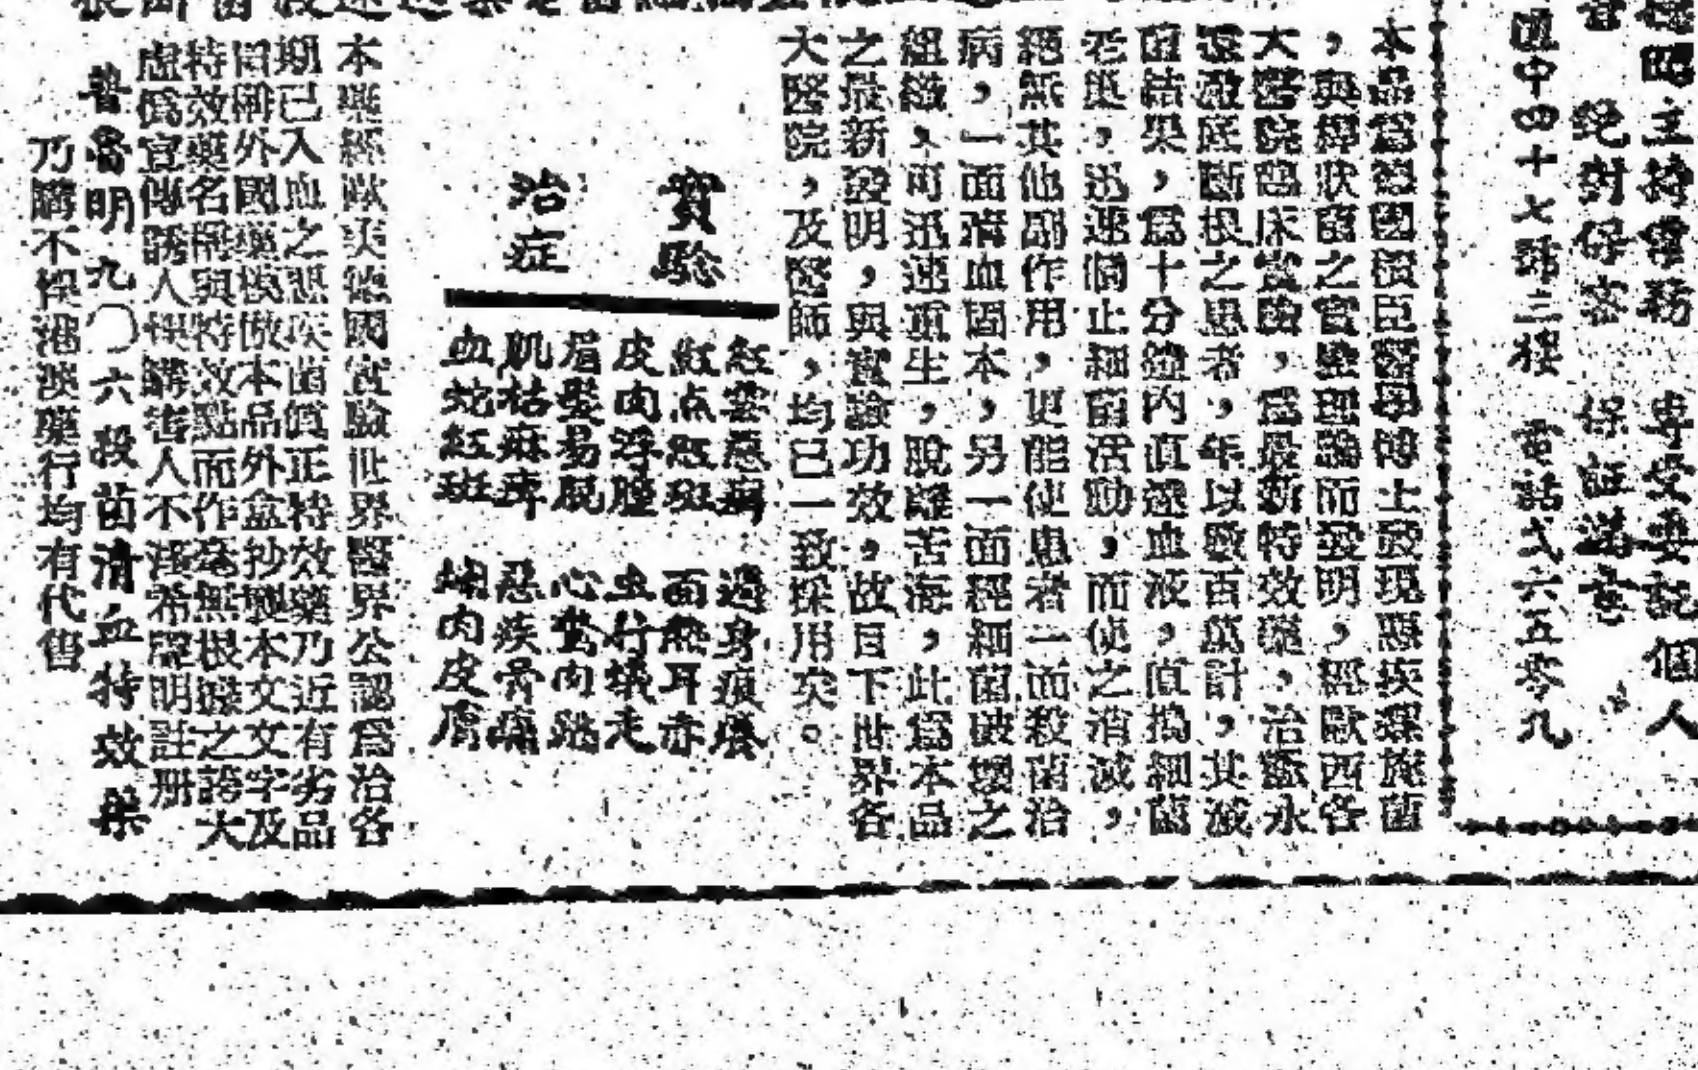 主持電務 専受委託個人
絕對保密 保証滿意
道中四十七號三樓 電話式六五零九
本品為德國援臣醫學博士發現惡疾桿施菌
，與桿狀菌之實驗理論而發明，經歐西各
大醫院臨床實驗，為最新特效藥，治驗永
遠徹底斷根之患者，年以數百萬計，其滅
菌結果，為十分鐘內直透血液，直搗細菌
老巢，迅速制止細菌活動，而使之消滅，
絕無其他副作用，更能使患者一面殺菌治
病，一面清血固本，另一面經細菌破壞之
組織，可迅速重生，脫離苦海，此為本品
之最新發明，與實驗功效，故目下世界各
大醫院，及醫師，均已一致採用矣。
實驗
治症
紅雲惡癩 過身痕癢
紅点紅斑 面熱耳赤
皮肉浮腫 虫行蟻走
眉髮易脫 心驚肉跳
肌枯麻痺 惡疾骨痛
血蛇紅斑 爛肉皮膚
本藥經歐美德國實驗世界醫界公認為治各
期已入血之惡疾菌真正特效藥乃近有劣品
冒稱外國藥模倣本品外盒抄襲本文文字及
特效藥名稱與特效點而作毫無根據之誇大
虛偽宣傳誘人悞購害人不淺希認明註册
普魯明九〇六殺菌清血特效藥
乃購不悞港澳藥行均有代售